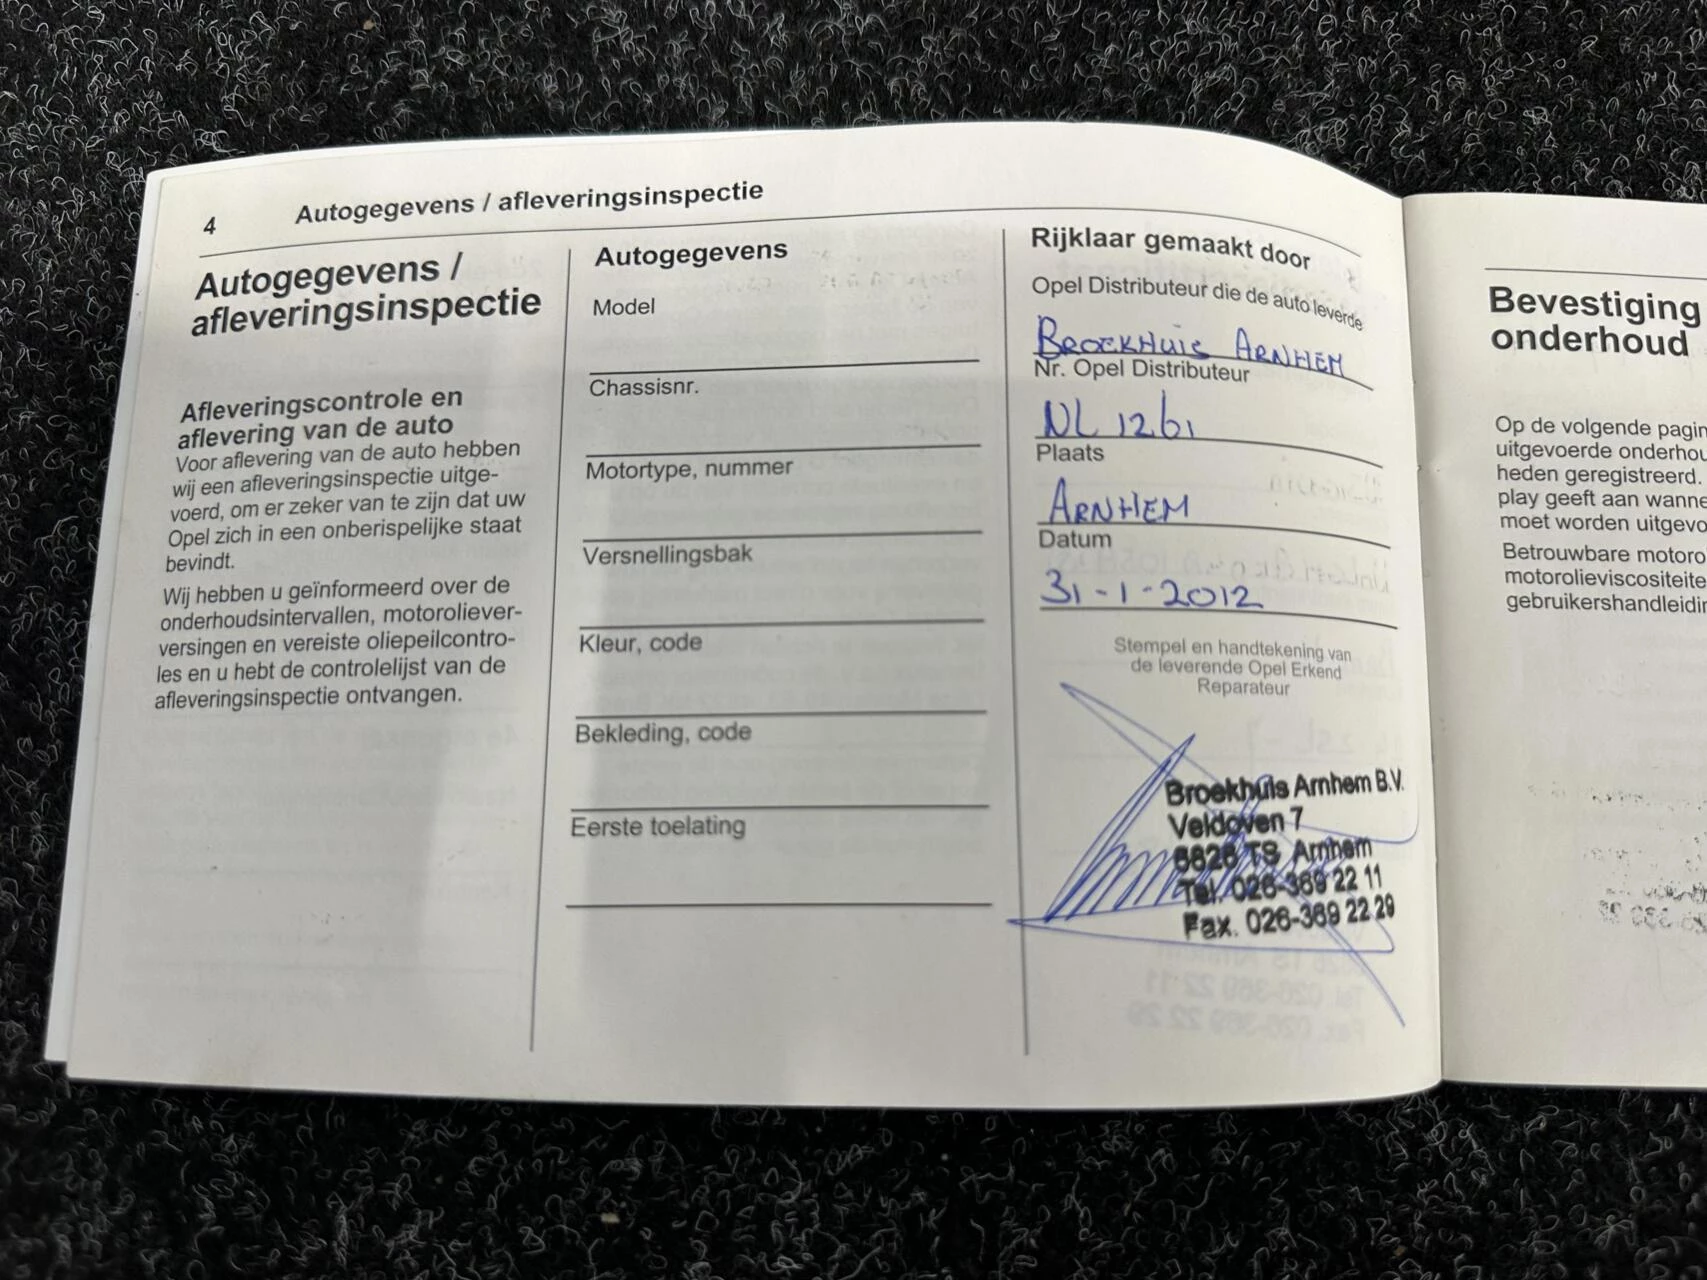 4 Autogegevens / afleveringsinspectie
Autogegevens /
afleveringsinspectie
Afleveringscontrole en
aflevering van de auto
Voor aflevering van de auto hebben
wij een afleveringsinspectie uitge-
voerd, om er zeker van te zijn dat uw
Opel zich in een onberispelijke staat
bevindt.
Wij hebben u geïnformeerd over de
onderhoudsintervallen, motoroliever-
versingen en vereiste oliepeilcontro-
les en u hebt de controlelijst van de
afleveringsinspectie ontvangen.
Autogegevens
Model
Chassisnr.
Motortype, nummer
Versnellingsbak
Kleur, code
Bekleding, code
Eerste toelating
Rijklaar gemaakt door
Opel Distributeur die de auto leverde
BROEKHUIS ARNHEM
Nr. Opel Distributeur
NL 1261
Plaats
ARNHEM
Datum
31-1-2012
Stempel en handtekening van
de leverende Opel Erkend
Reparateur
Broekhuis Arnhem B.V.
Veldoven 7
6826 TS Arnhem
Tel. 026-369 22 11
Fax. 026-369 22 29
Bevestiging
onderhoud
Op de volgende pagin
uitgevoerde onderhou
heden geregistreerd.
play geeft aan wanne
moet worden uitgevo
Betrouwbare motoro
motorolieviscositeite
gebruikershandleidin